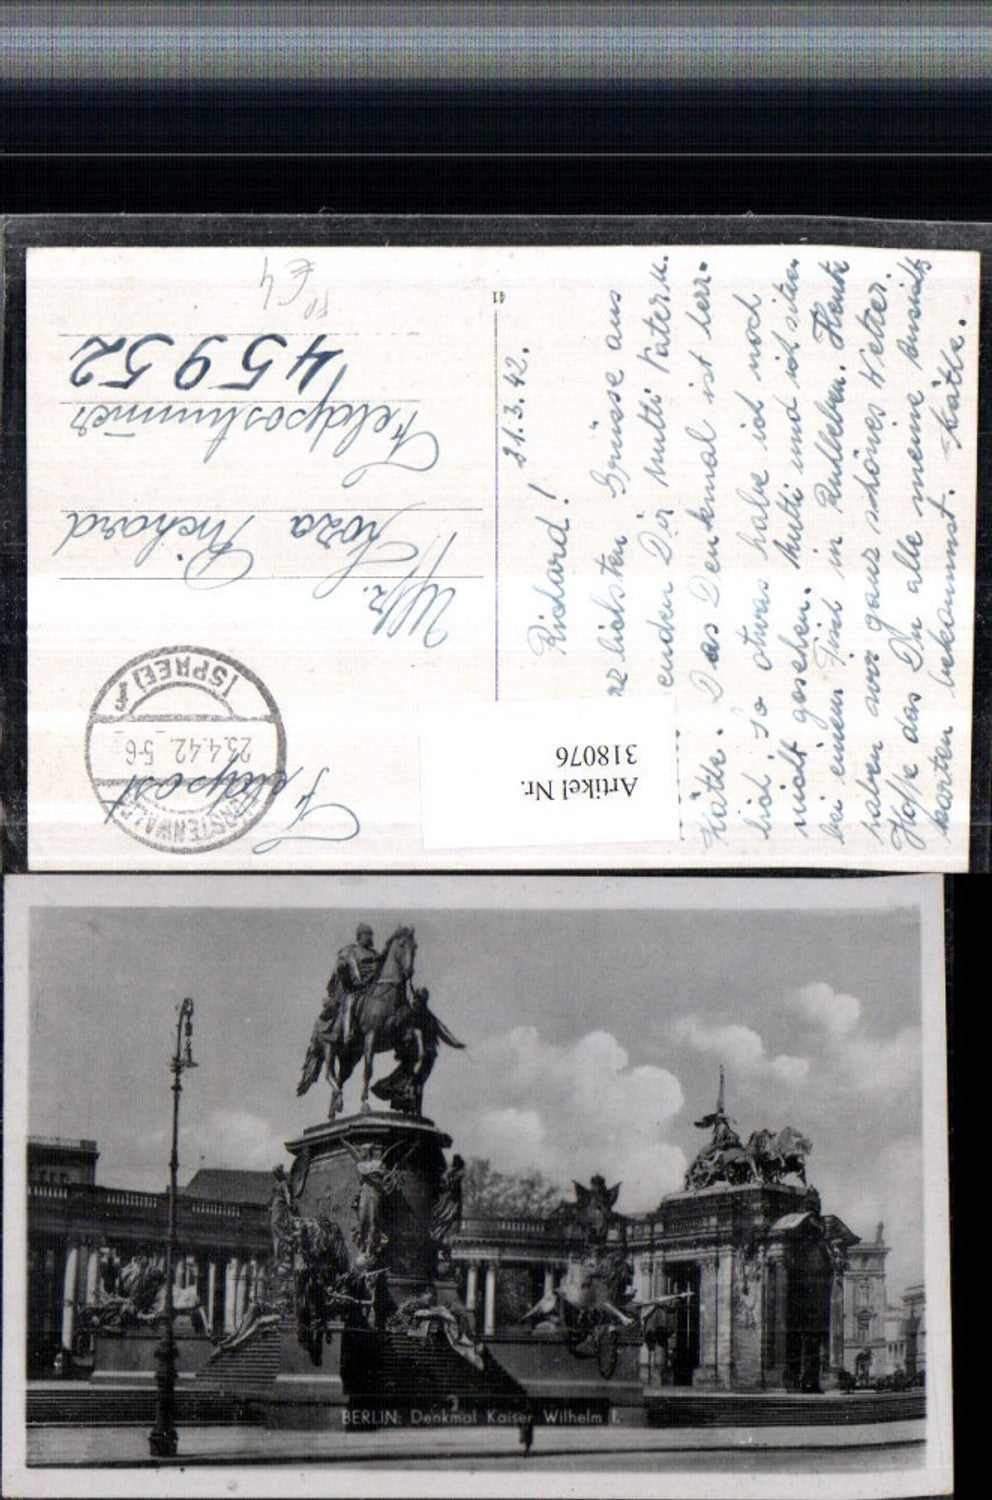 Feldpost
FÜRSTENWALDE
25.4.42. 5-6
(SPREE)
Richard
Feldpostnummer
45952
€ 4
41
21.3.42.
Richard!
lichsten Grüsse aus
enden Dir Mutti Vater u.
Kätte. Das Denkmal ist herr-
lich! So etwas habe ich noch
nicht gesehen. Mutti und ich sitzen
bei einem Tisch in Ruhleben. Heute
haben wir ganz schönes Wetter.
Hoffe das Du alle meine Ansichts
karten bekommst. Kätte.
Artikel Nr.
318076
BERLIN: Denkmal Kaiser Wilhelm I.